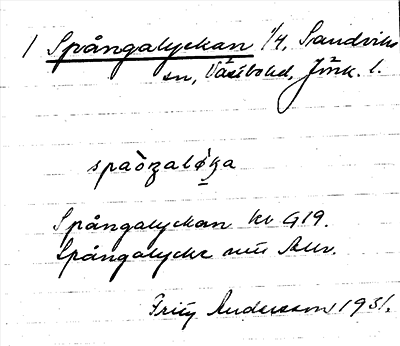 1 Spångalyckan 1/4, Sandviks
sn, Västbo hd, Jönk. l.
spaòzaløka
Spångalyckan hv G19.
Spångalycke
Fritz Andersson 1931.